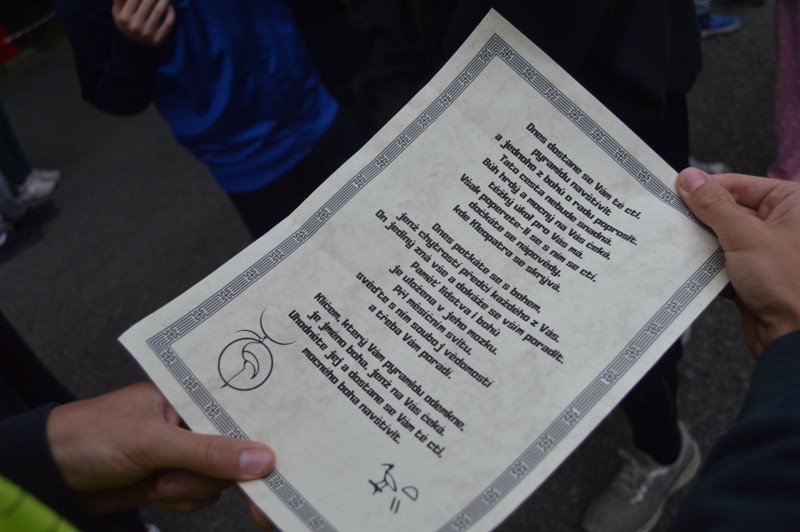 Dnes dostane se Vám té cti,
pyramidu navštívit
a jednoho z bohů o radu poprosit.
Tato cesta nebude snadná,
Bůh hrdý a mocný na Vás čeká,
těžký úkol pro Vás má.
Však poperete-li se s ním se ctí,
dočkáte se nápovědy,
kde Kleopatra se skrývá.
Dnes potkáte se s bohem,
jenž chytrostí předčí každého z Vás.
On jediný zná vše a dokáže se vším poradit.
Paměť lidstva i bohů
je uložena v jeho mozku.
Při měsíčním svitu,
sveďte s ním souboj vědomostí
a třeba Vám poradí.
Klíčem, který Vám pyramidu odemkne,
je jméno boha, jenž na Vás čeká.
Uhodněte jej a dostane se Vám té cti,
mocného boha navštívit.